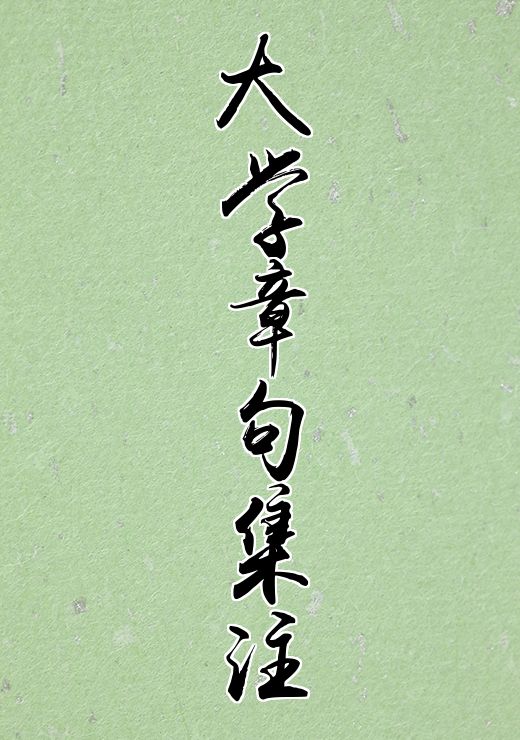 大学章句集注